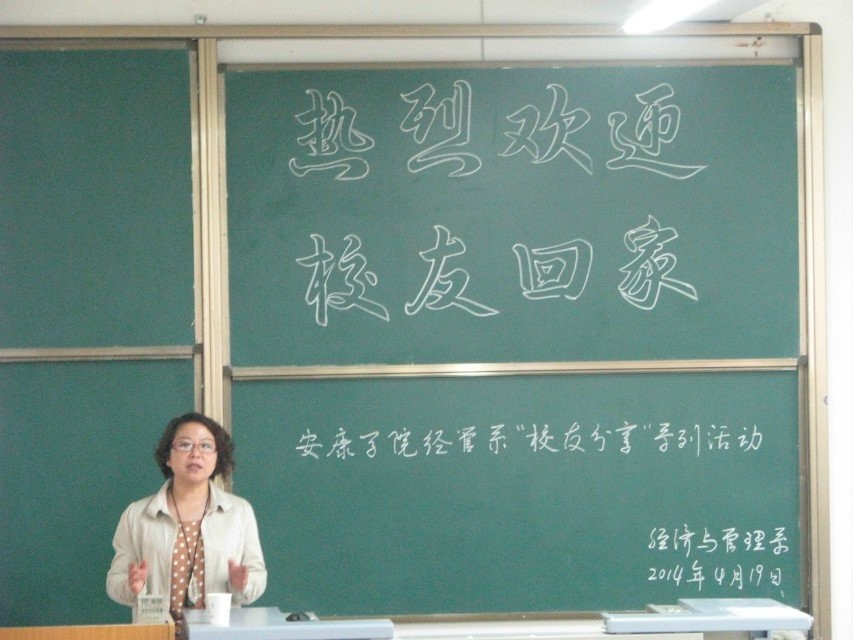 热烈欢迎
校友回家
安康学院经管系“校友分享”系列活动
经济与管理系
2014年4月19日